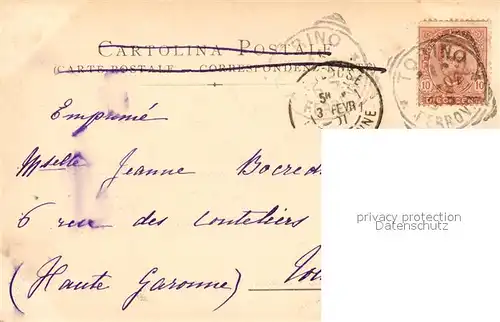 CARTOLINA POSTALE
(CARTE POSTALE - CORRESPONDENZ
TORINO
10 10
TORINO
FERROVIA
5H *
3 FEVR
01
Emprimé
Mselle Jeanne Bocred
6 rue des Couteliers
(Haute Garonne) Tou
privacy protection
Datenschutz